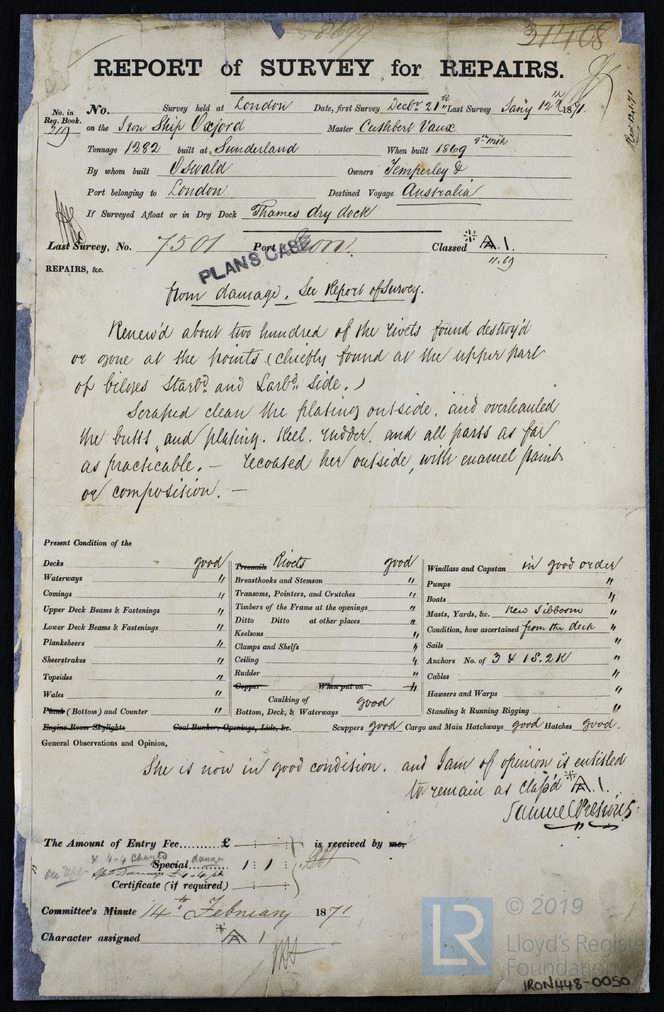 31408
REPORT of SURVEY for REPAIRS.
No. in Reg. Book.
319
No. Survey held at London Date, first Survey Decbr 21st Last Survey Jany 12th 1871.
on the Iron Ship Oxford Master Cuthbert Vaux
Tonnage 1282 built at Sunderland When built 1869 9th Mth
By whom built Oswald Owners Temperley &
Port belonging to London Destined Voyage Australia
If Surveyed Afloat or in Dry Dock Thames dry dock
Last Survey, No. 7501 Port Lon. Classed A.1.
11.69
PLANS CASE
REPAIRS, &c.
from damage. See Report of Survey.
Renew'd about two hundred of the rivets found destroy'd
or gone at the points (chiefly found at the upper part
of bilges Starbd and Larbd side.)
Scraped clean the plating outside, and overhauled
the butts and plating. Keel, rudder, and all parts as far
as practicable. — recoated her outside, with enamel paint
or composition. —
Present Condition of the
Decks good
Waterways "
Comings "
Upper Deck Beams & Fastenings "
Lower Deck Beams & Fastenings "
Planksheers "
Sheerstrakes "
Topsides "
Wales "
Plank (Bottom) and Counter "
Engine Room Skylights Coal Bunker, Openings, Lids, &c.
Treenails Rivets good
Breasthooks and Stemson "
Transoms, Pointers, and Crutches "
Timbers of the Frame at the openings "
Ditto Ditto at other places "
Keelsons "
Clamps and Shelfs "
Ceiling "
Rudder "
Copper When put on "
Caulking of
Bottom, Deck, & Waterways good
Windlass and Capstan in good order
Pumps "
Boats "
Masts, Yards, &c. New Jibboom "
Condition, how ascertained from the deck "
Sails "
Anchors No. of 3 & 1S. 2K "
Cables "
Hawsers and Warps "
Standing & Running Rigging "
Scuppers good Cargo and Main Hatchways good Hatches good.
General Observations and Opinion,
She is now in good condition. and I am of opinion is entitled
to remain as class'd A.1.
The Amount of Entry Fee...... £ : : is received by me,
Special damage 1 : 1 :
Certificate (if required) : :
Committee's Minute 14th February 1871
Character assigned A 1
LR © 2019
Lloyd's Register
Foundation
IRON448-0050